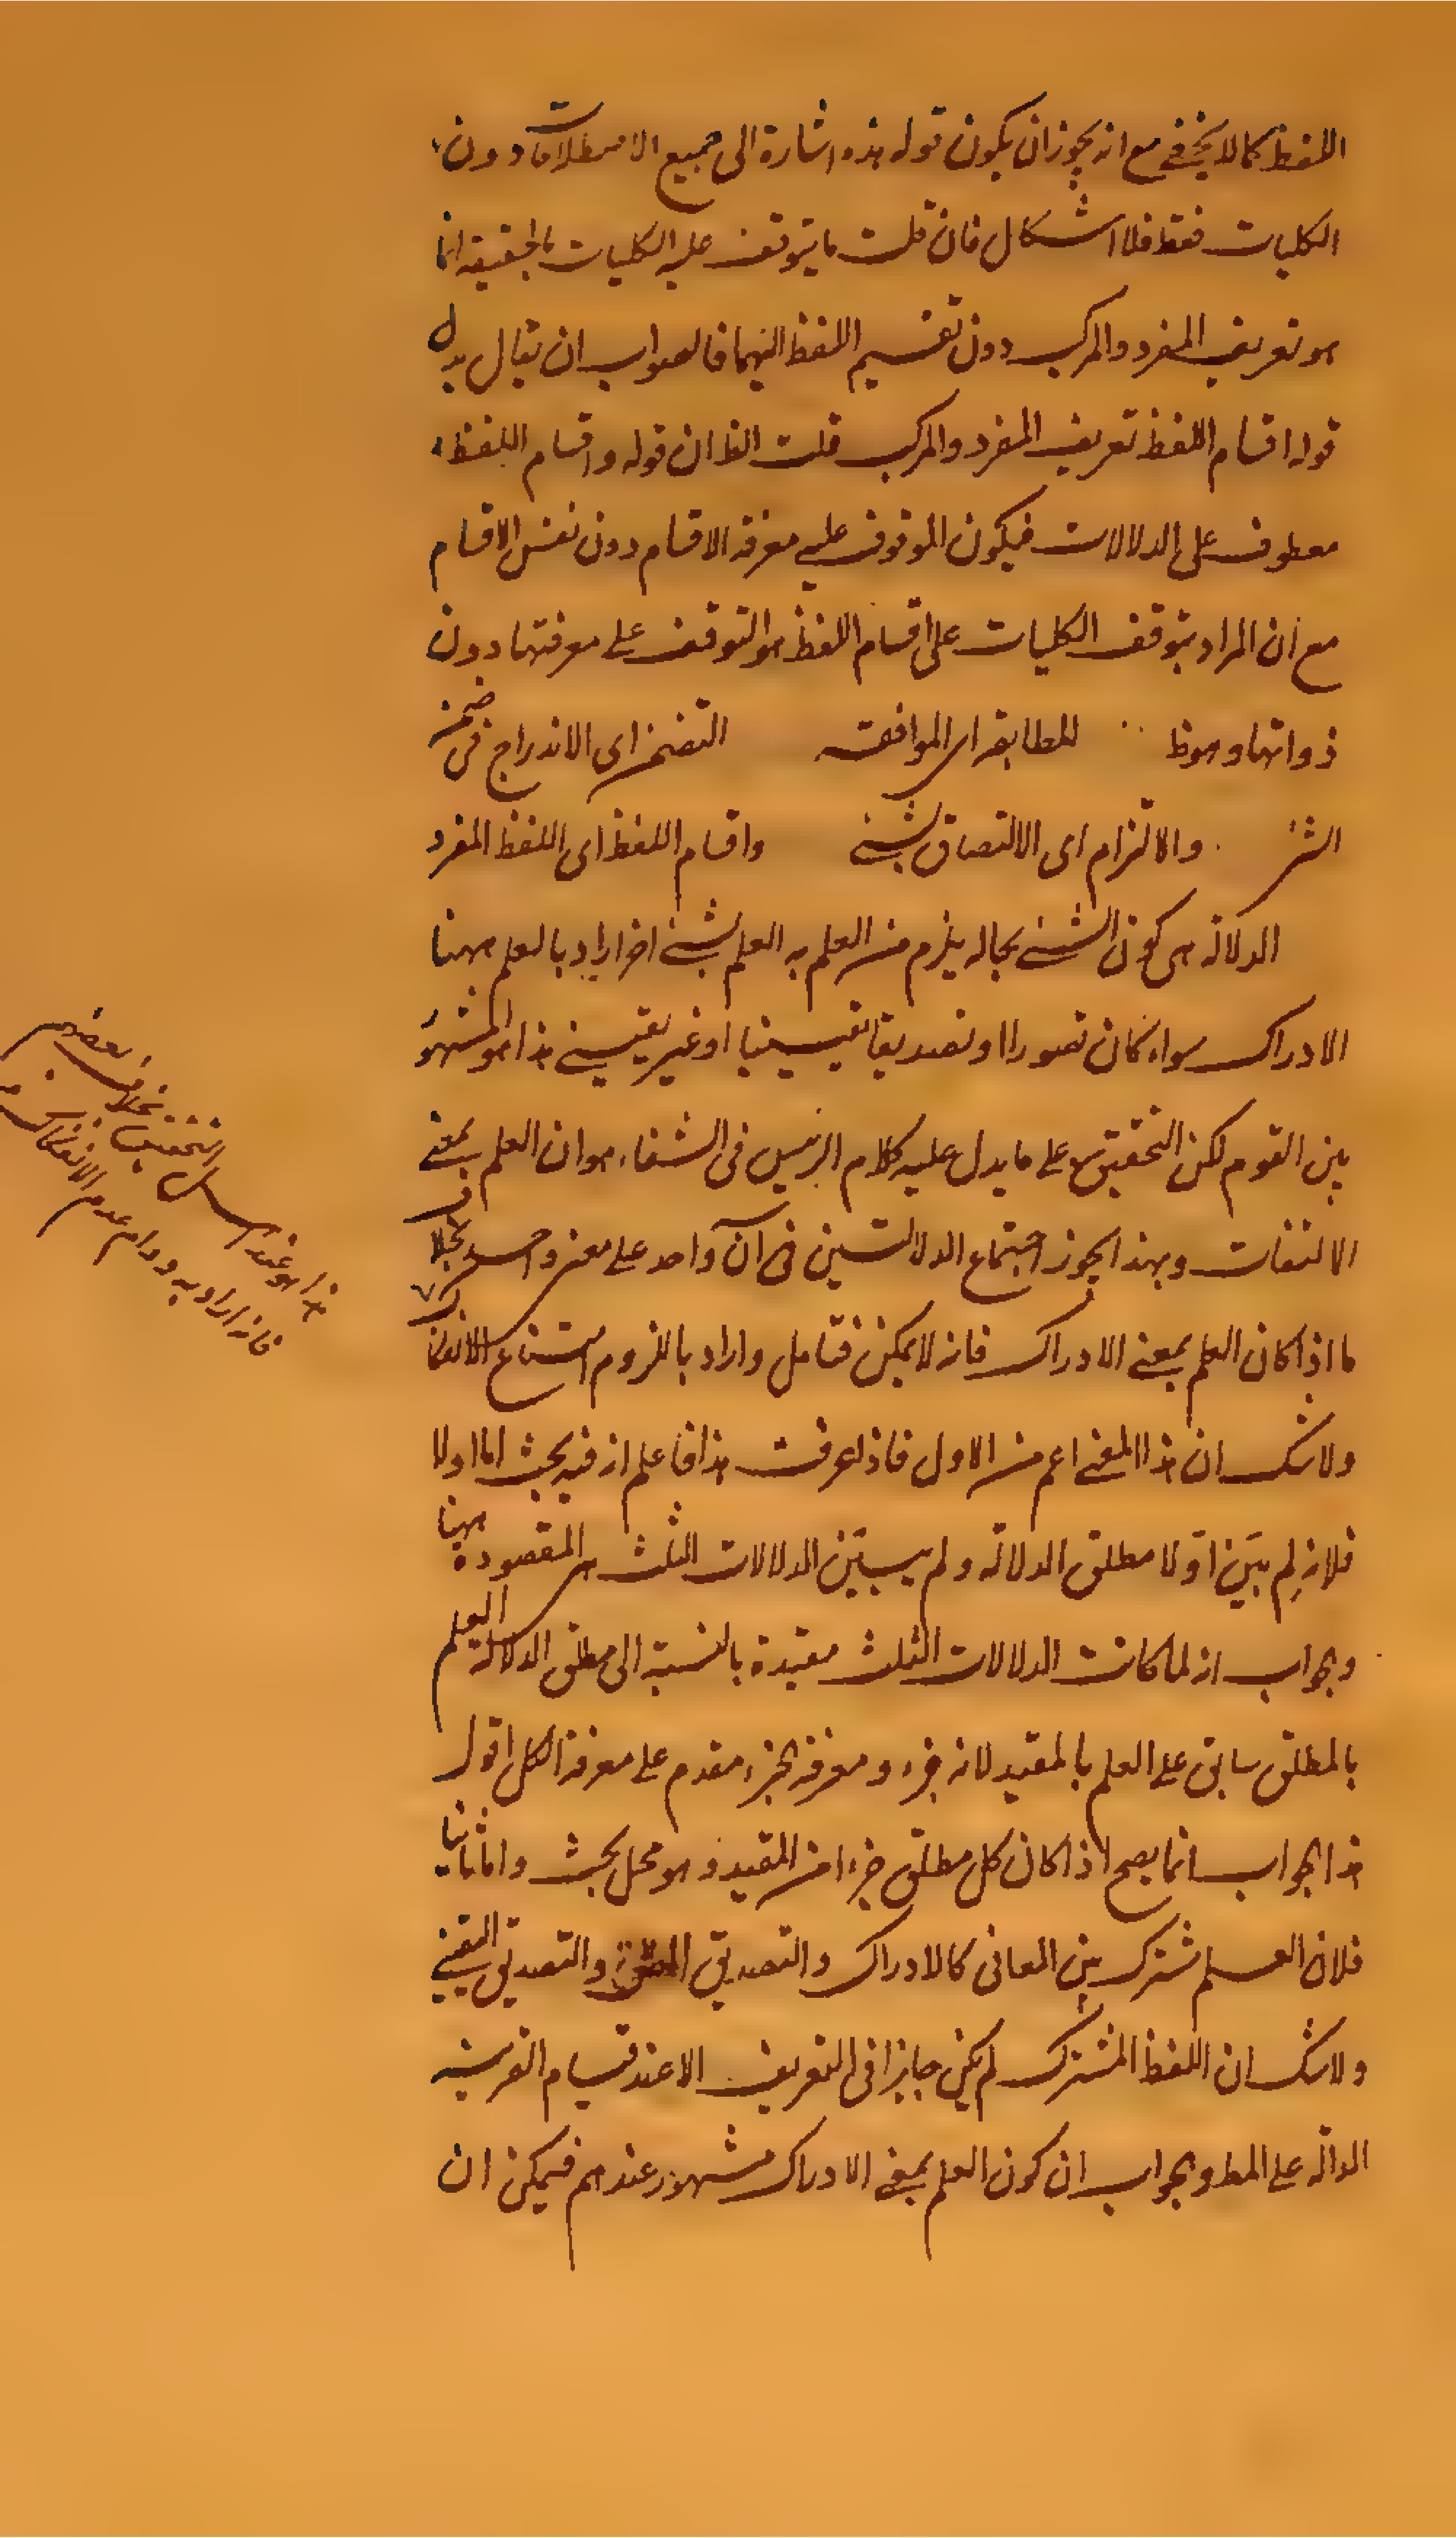 اللفظ كما لا يخفى مع انه يجوز ان يكون قوله هذه اشارة الى جميع الاصطلاحات دون
الكليات فقط فلا اشكال فان قلت ما يتوقف عليه الكليات بالحقيقة انما
هو تعريف المفرد والمركب دون تقسيم اللفظ اليهما فالصواب ان يقال بدل
قوله اقسام اللفظ تعريف المفرد والمركب قلت الظ ان قوله واقسام اللفظ
معطوف على الدلالات فيكون الموقوف عليه معرفة الاقسام دون نفس الاقسام
مع ان المراد بتوقف الكليات على اقسام اللفظ هو التوقف على معرفتها دون
ذواتها وهو ظ للمطابقة اى الموافقة التضمن اى الاندراج فى ضمن
الشئ والالتزام اى الالتصاق بشئ واقسام اللفظ اى اللفظ المفرد
الدلالة هى كون الشئ بحالة يلزم من العلم به العلم بشئ اخر اراد بالعلم ههنا
الادراك سواء كان تصورا او تصديقا يقينيا او غير يقينى هذا هو المشهور
بين القوم لكن التحقيق على ما يدل عليه كلام الرئيس فى الشفاء هو ان العلم بمعنى
الالتفات وبهذا يجوز اجتماع الدلالتين فى آن واحد على معنى واحد بخلاف
ما اذا كان العلم بمعنى الادراك فانه لا يمكن فتامل واراد باللزوم امتناع الانفكاك
ولا شك ان هذا المعنى اعم من الاول فاذا عرفت هذا فاعلم انه فيه بحث اما اولا
فلانه لم بين اولا مطلق الدلالة ولم يبين الدلالات الثلث هى المقصودة ههنا
وجوابه انه لما كانت الدلالات الثلث مقيدة بالنسبة الى مطلق الدلالة العلم
بالمطلق سابق على العلم بالمقيد لانه جزء ومعرفة الجزء مقدم على معرفة الكل اقول
هذا الجواب انما يصح اذا كان كل مطلق جزءا من المقيد وهو محل بحث واما ثانيا
فلان العلم مشترك بين المعانى كالادراك والتصديق والتصديق اليقينى
ولا شك ان اللفظ المشترك لم يكن جايزا فى التعريف الا عند قيام القرينة
الدالة على المط وجوابه ان كون العلم بمعنى الادراك مشهور عندهم فيمكن ان
هذا هو عند التحقيق بخلاف بعضهم
فانه اراد به دوام عدم الانفكاك